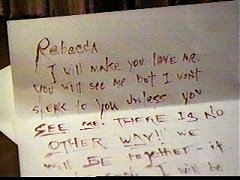 Rebecca
I will make you love me.
you will see me but I wont
speak to you unless you
SEE me. THERE IS NO
OTHER WAY!! WE
will BE together - it
I will be